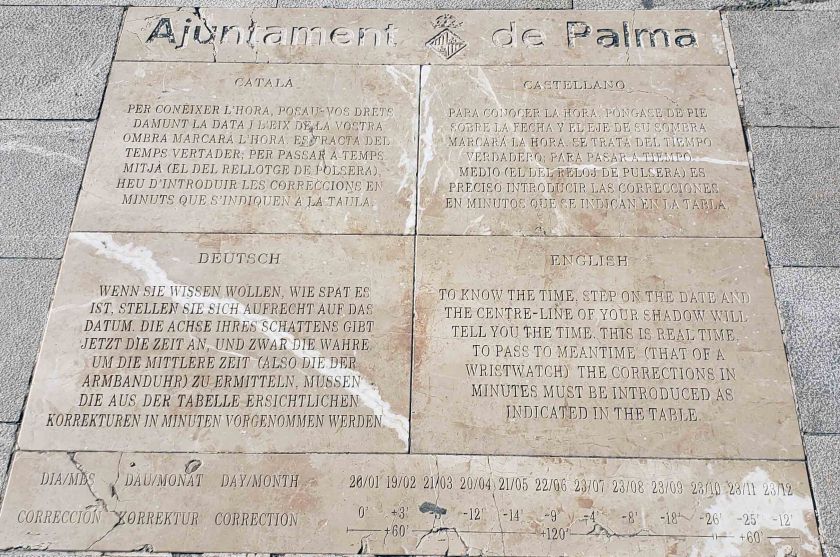 Ajuntament de Palma
CATALÀ
PER CONÈIXER L'HORA, POSAU-VOS DRETS
DAMUNT LA DATA I L'EIX DE LA VOSTRA
OMBRA MARCARÀ L'HORA. ES TRACTA DEL
TEMPS VERTADER; PER PASSAR A TEMPS
MITJÀ (EL DEL RELLOTGE DE POLSERA),
HEU D'INTRODUIR LES CORRECCIONS EN
MINUTS QUE S'INDIQUEN A LA TAULA.
CASTELLANO
PARA CONOCER LA HORA, PÓNGASE DE PIE
SOBRE LA FECHA Y EL EJE DE SU SOMBRA
MARCARÁ LA HORA. SE TRATA DEL TIEMPO
VERDADERO; PARA PASAR A TIEMPO
MEDIO (EL DEL RELOJ DE PULSERA) ES
PRECISO INTRODUCIR LAS CORRECCIONES
EN MINUTOS QUE SE INDICAN EN LA TABLA
DEUTSCH
WENN SIE WISSEN WOLLEN, WIE SPÄT ES
IST, STELLEN SIE SICH AUFRECHT AUF DAS
DATUM. DIE ACHSE IHRES SCHATTENS GIBT
JETZT DIE ZEIT AN, UND ZWAR DIE WAHRE.
UM DIE MITTLERE ZEIT (ALSO DIE DER
ARMBANDUHR) ZU ERMITTELN, MÜSSEN
DIE AUS DER TABELLE ERSICHTLICHEN
KORREKTUREN IN MINUTEN VORGENOMMEN WERDEN.
ENGLISH
TO KNOW THE TIME, STEP ON THE DATE AND
THE CENTRE-LINE OF YOUR SHADOW WILL
TELL YOU THE TIME. THIS IS REAL TIME,
TO PASS TO MEANTIME, (THAT OF A
WRISTWATCH) THE CORRECTIONS IN
MINUTES MUST BE INTRODUCED AS
INDICATED IN THE TABLE.
DIA/MES DAU/MONAT DAY/MONTH 20/01 19/02 21/03 20/04 21/05 22/06 23/07 23/08 23/09 23/10 23/11 23/12
CORRECCIÓN KORREKTUR CORRECTION 0' +3' -12' -14' -9' -4' -8' -18' -26' -25' -12'
+60' +120' +60'